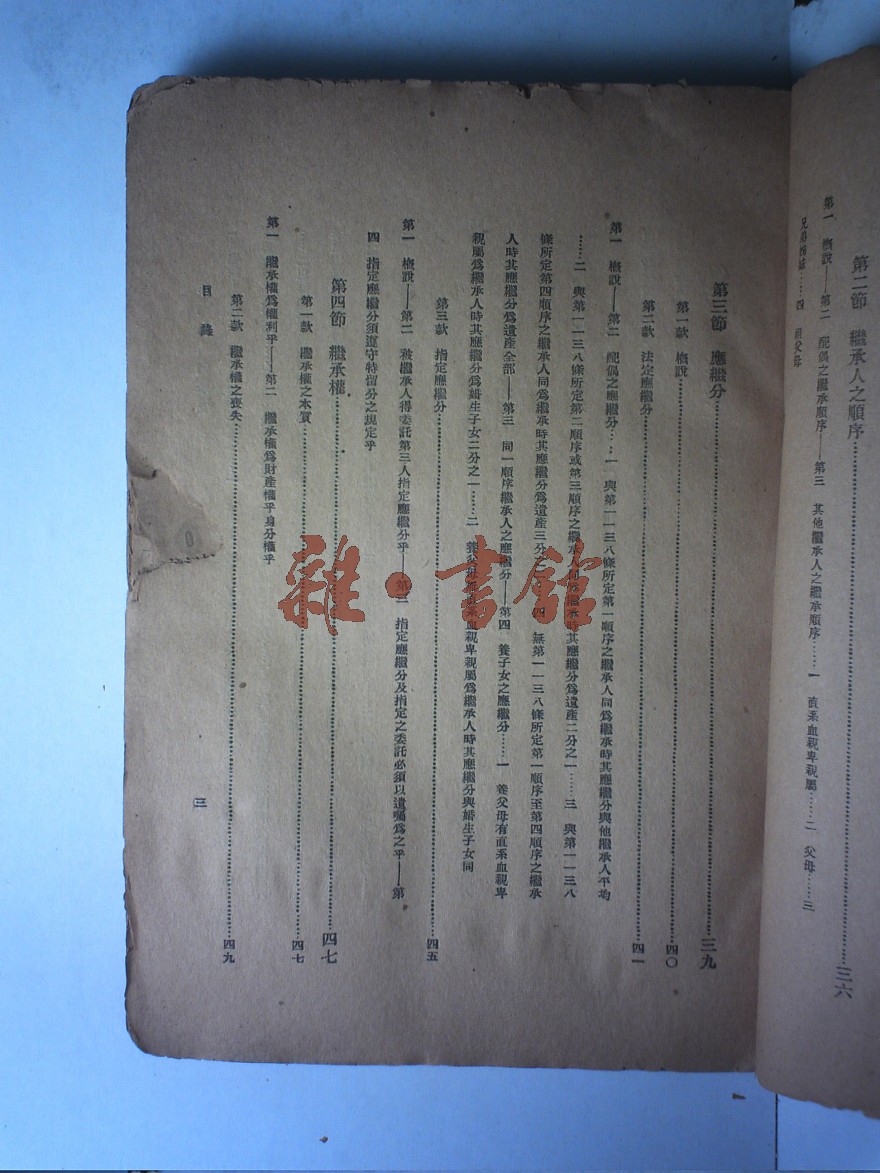 第二節　繼承人之順序……三六
第一　概說——第二　配偶之繼承順序——第三　其他繼承人之繼承順序……一　直系血親卑親屬……二　父母……三
兄弟姊妹……四　祖父母
第三節　應繼分……三九
第一款　概說……四〇
第二款　法定應繼分……四一
第一　概說——第二　配偶之應繼分……一　與第一一三八條所定第一順序之繼承人同爲繼承時其應繼分與他繼承人平均
……二　與第一一三八條所定第二順序或第三順序之繼承人同爲繼承時其應繼分爲遺產二分之一……三　與第一一三八
條所定第四順序之繼承人同爲繼承時其應繼分爲遺產三分之二……四　無第一一三八條所定第一順序至第四順序之繼承
人時其應繼分爲遺產全部——第三　同一順序繼承人之應繼分——第四　養子女之應繼分……一　養父母有直系血親卑
親屬爲繼承人時其應繼分爲婚生子女二分之一……二　養父母無直系血親卑親屬爲繼承人時其應繼分與婚生子女同
第三款　指定應繼分……四五
第一　概說——第二　被繼承人得委託第三人指定應繼分乎——第三　指定應繼分及指定之委託必須以遺囑爲之乎——第
四　指定應繼分須遵守特留分之規定乎
第四節　繼承權……四七
第一款　繼承權之本質……四七
第一　繼承權爲權利乎——第二　繼承權爲財產權乎身分權乎
第二款　繼承權之喪失……四九
目　錄
三
雜·書館